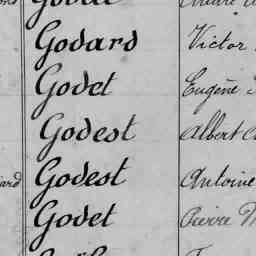 Godard Victor
Godet Eugène
Godest Albert
Godest Antoine
Godet Pierre